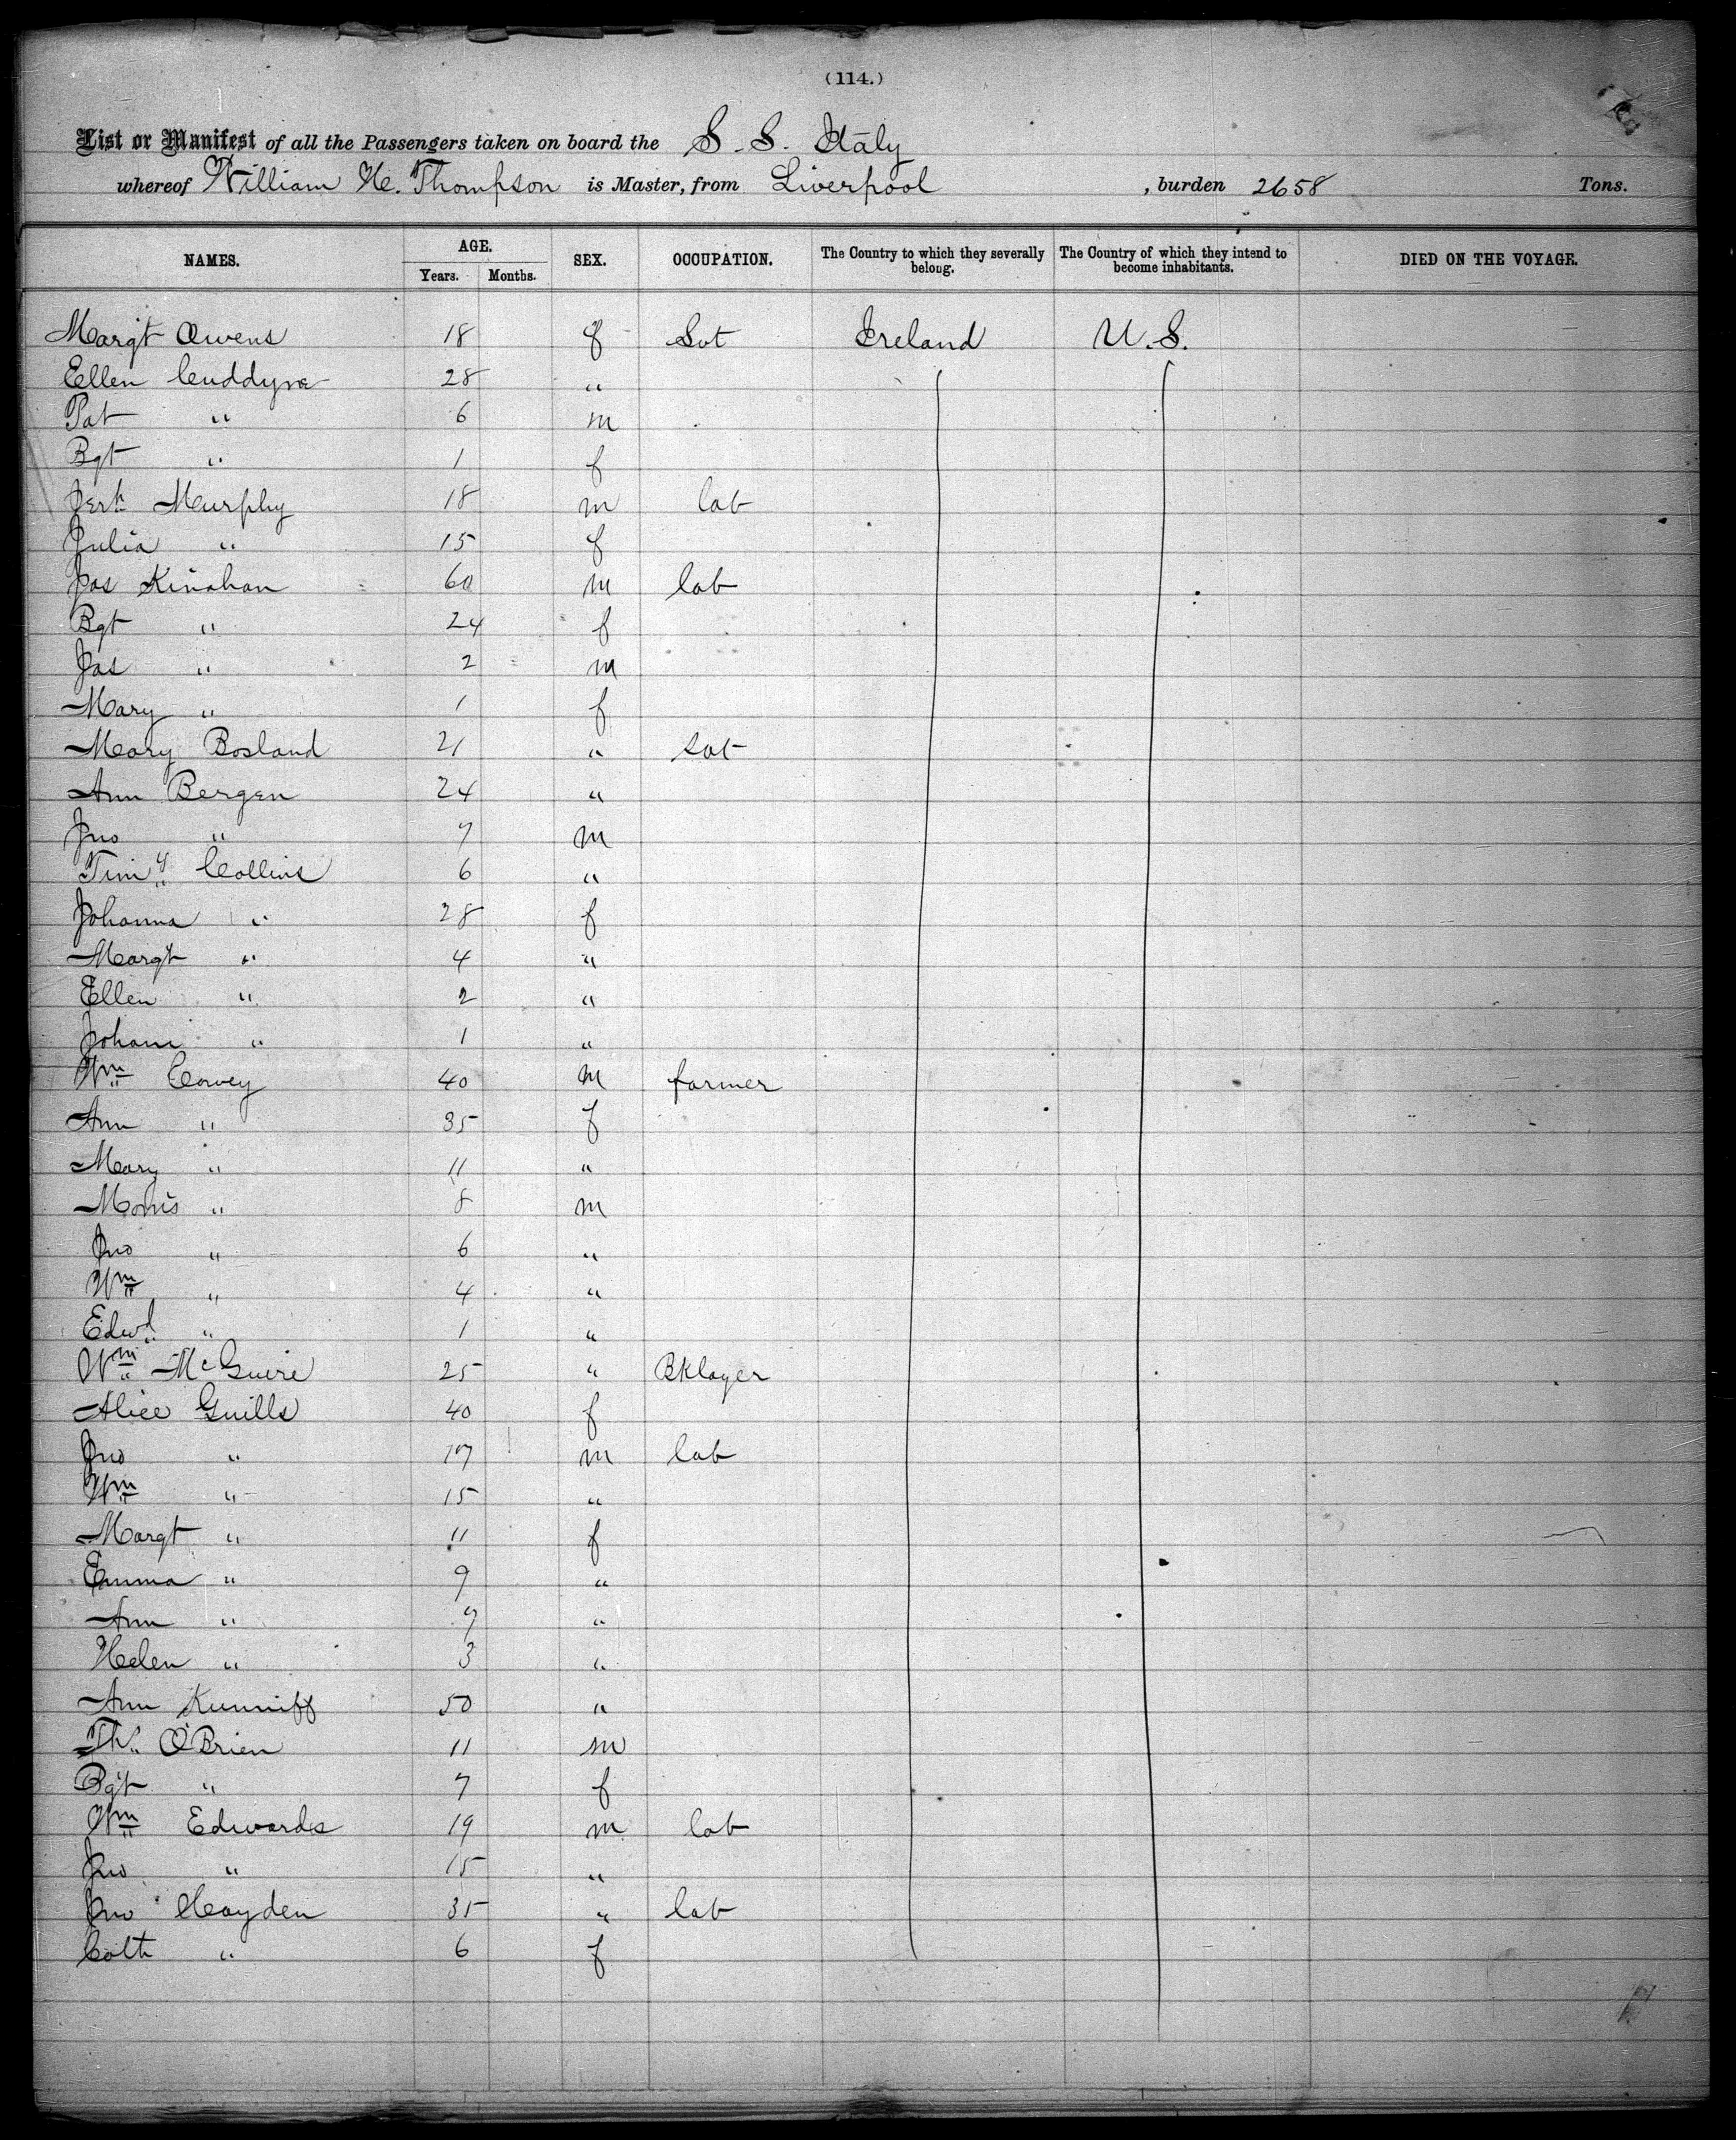 (114.)
List or Manifest of all the Passengers taken on board the S. S. Italy
whereof William H. Thompson is Master, from Liverpool , burden 2658 Tons.
NAMES. AGE. Years. Months. SEX. OCCUPATION. The Country to which they severally belong. The Country of which they intend to become inhabitants. DIED ON THE VOYAGE.
Margt Owens 18 f Svt Ireland U.S.
Ellen 28 "
Pat " 6 m
Bgt " 1 f
Jerh Murphy 18 m lab
Julia " 15 f
Jas Kinahan 60 m lab
Bgt " 24 f
Jas " 2 m
Mary " 1 f
Mary Bosland 21 " svt
Ann Bergen 24 "
Jno " 7 m
Timy Collins 6 "
Johanna " 28 f
Margt " 4 "
Ellen " 2 "
" 1 "
Wm Corvey 40 m farmer
Ann " 35 f
Mary " 11 "
Morris " 8 m
Jno " 6 "
Wm " 4 "
Edwd " 1 "
Wm McGuire 25 " Bklayer
Alice Guills 40 f
Jno " 17 m lab
Wm " 15 "
Margt " 11 f
Emma " 9 "
Ann " 9 "
Helen " 3 "
Ann Kunniff 50 "
Ths O'Brien 11 m
Bgt " 7 f
Wm Edwards 19 m lab
Jno " 15 "
Jno Hayden 35 " lab
Cath " 6 f